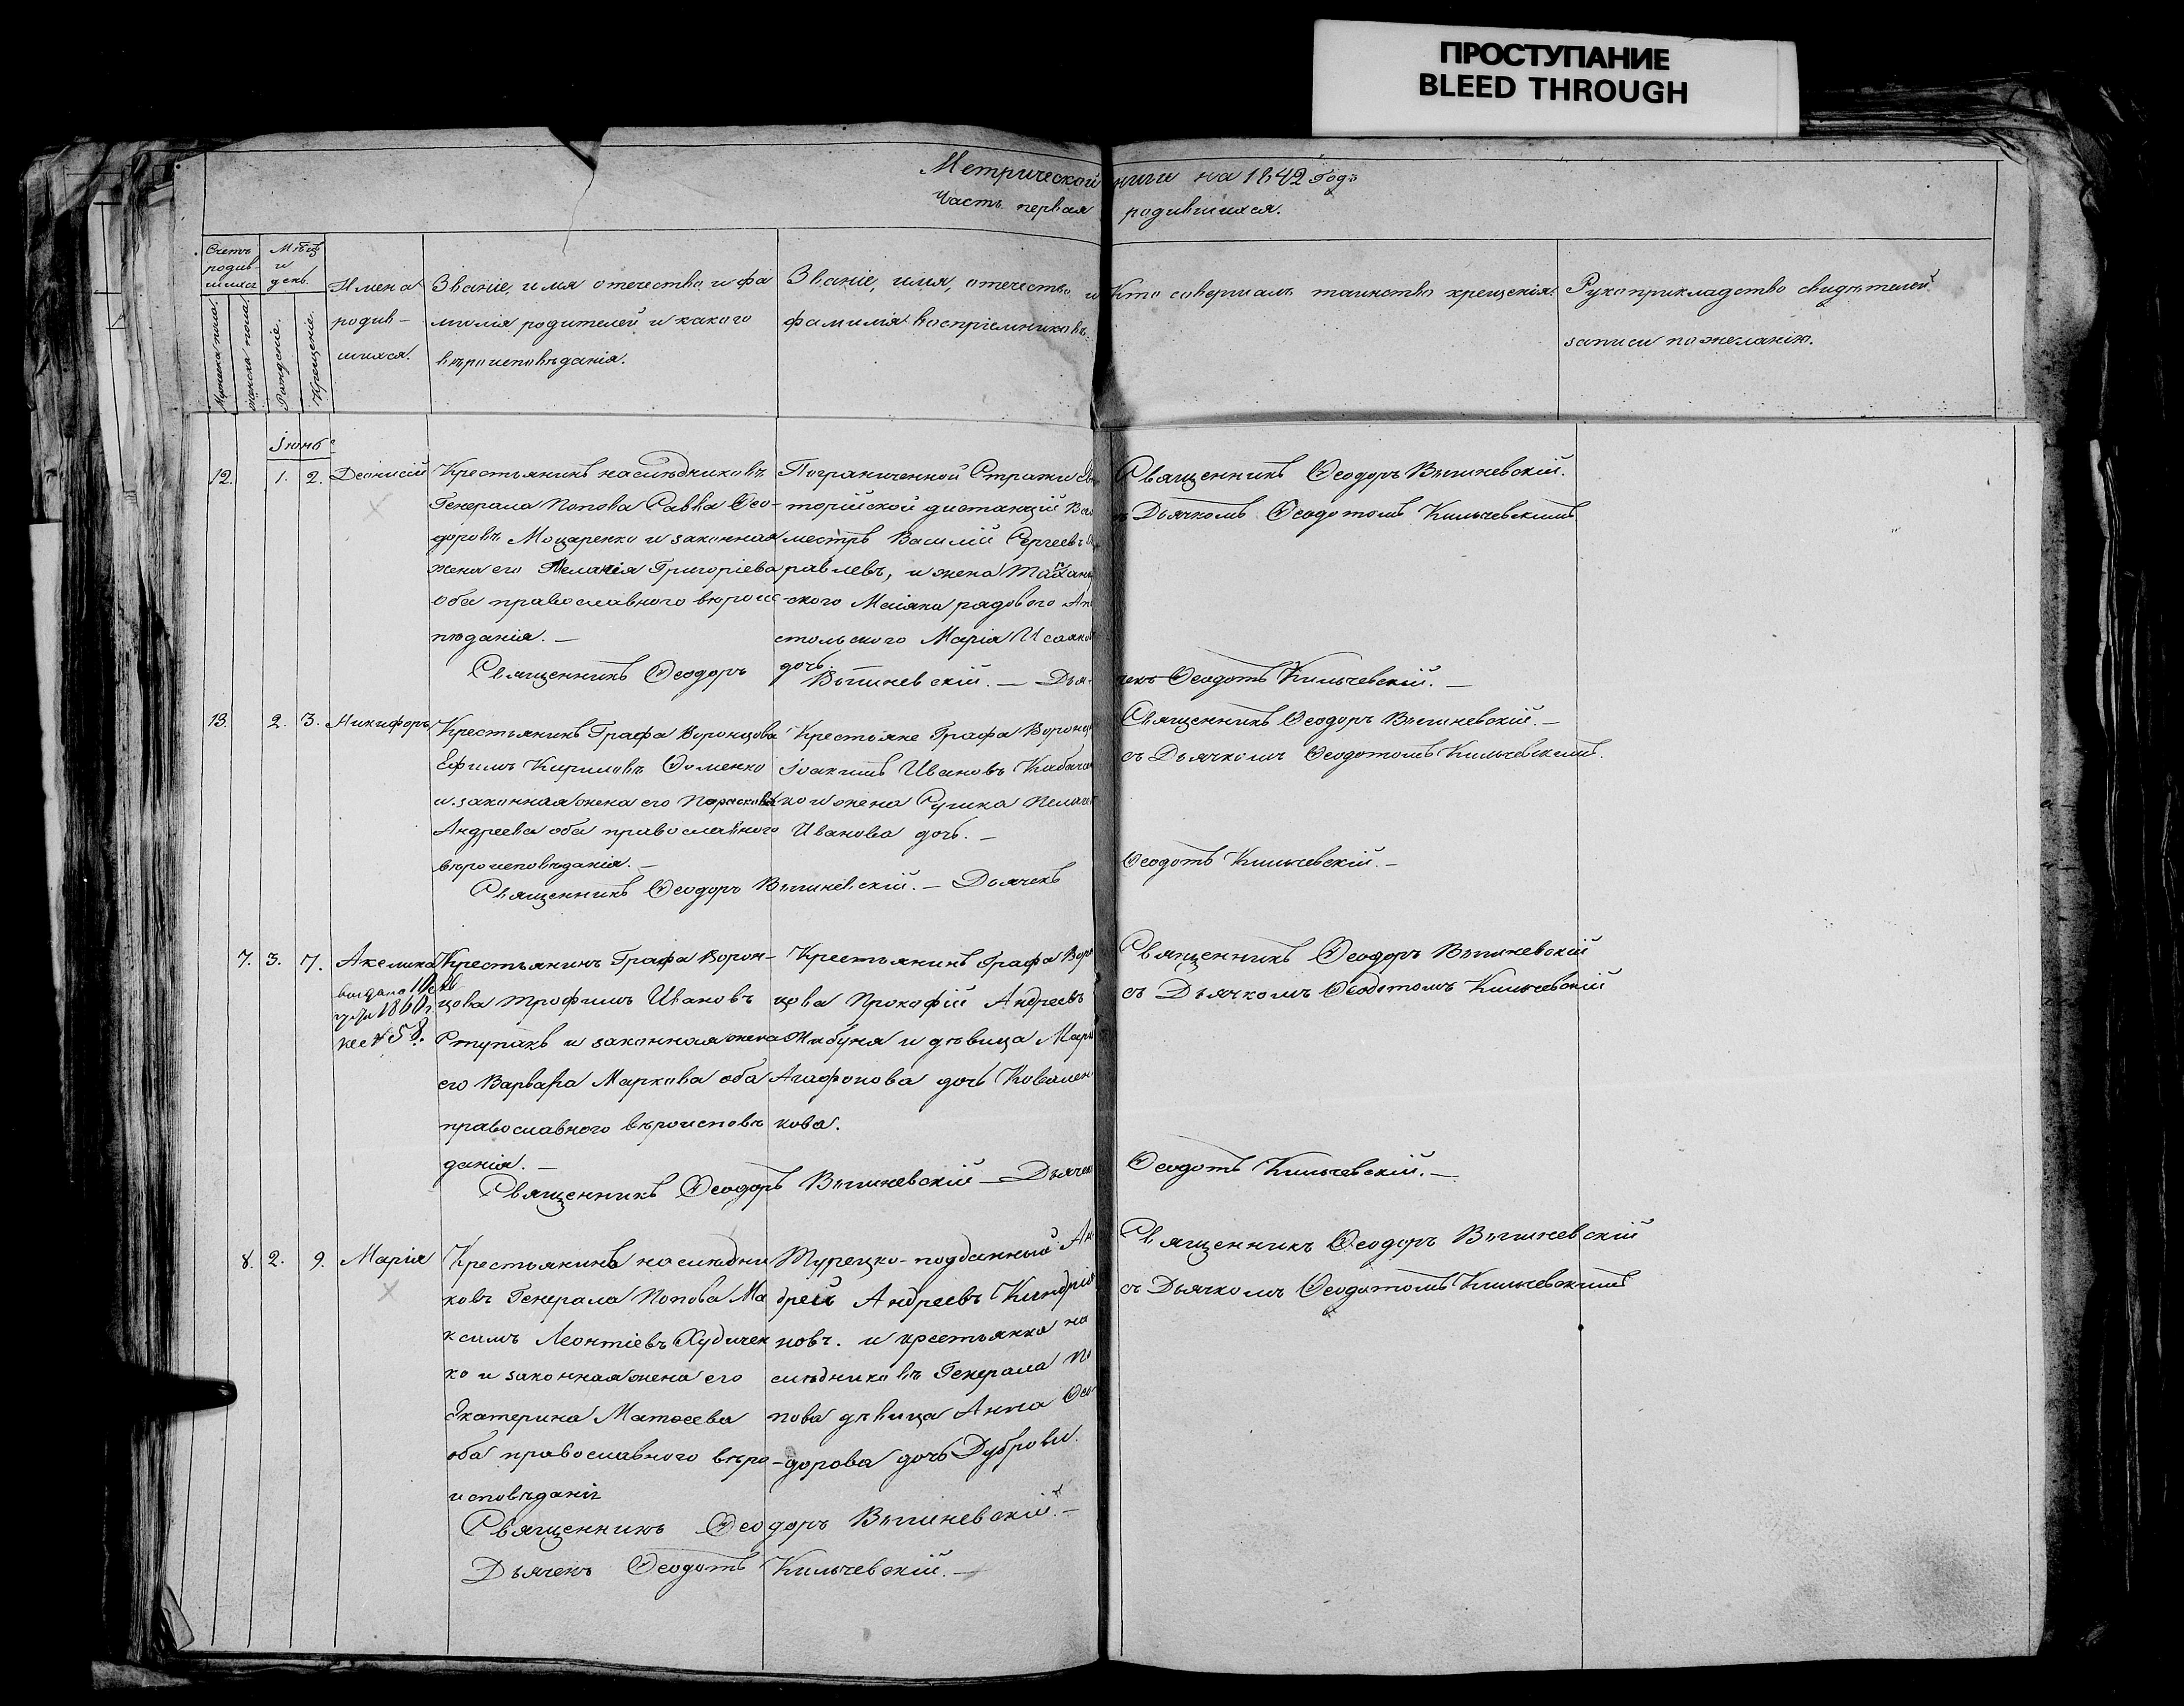 ПРОСТУПАНИЕ
BLEED THROUGH
Метрической ниги на 1842 Годъ
Часть первая родившихся.
Счетъ родив-шихся
Мѣсцъ и день.
Мужеска пола.
Женска пола.
Рожденіе.
Крещеніе.
Имена родив-шихся.
Званіе, имя отечество и фа
милія родителей и какого
вѣроисповѣданія.
Званіе, имя, отечество и
фамилія воспріемниковъ.
Кто совершалъ таинство крещенія.
Рукоприкладство свидѣтелей
записи по желанію.
Іюнь
12. 1. 2. Деонисій
Крестьянинъ наслѣдниковъ
Генерала Попова Савва Ѳео-
доровъ Моцаренко и законная
жена его Меланія Григоріева
оба православного вѣроис
пѣданія. —
Пограниченной Стражи
торійской дистанціи
местръ Василій Сергеевъ
равлевъ, и жена
ского Маіяка рядового Ап
стольского Марія Исаако
дочь.
Священникъ Ѳеодоръ Вышневскій.
Дьячкомъ Ѳеодотомъ Кильчевскимъ
Священникъ Ѳеодоръ Вышневскій. — Дья-
чекъ Ѳеодотъ Кильчевскій. —
13. 2. 3. Никифоръ
Крестьянинъ Графа Воронцова
Ефимъ Кириловъ Ѳоменко
и законная жена его Парасковія
Андреева оба православного
вѣроисповѣданія. —
Крестьяне Графа Воронцо
Іоакимъ Ивановъ Кабача
ко и жена Ругика Пелаге
Иванова дочь. —
Священникъ Ѳеодоръ Вышневскій. —
съ Дьячкомъ Ѳеодотомъ Кильчевскимъ.
Священникъ Ѳеодоръ Вышневскій. — Дьячекъ
Ѳеодотъ Кильчевскій. —
7. 3. 7. Акелина
выдано
1860 г.
№ 458.
Крестьянинъ Графа Ворон-
цова Трофимъ Ивановъ
Ступакъ и законная жена
его Варвара Маркова оба
православного вѣроисповѣ
данія. —
Крестьянинъ Графа Воро
цова Прокофій Андреевъ
Жабуня и дѣвица Мары
Агафонова дочь Ковален
кова.
Священникъ Ѳеодоръ Вышневскій
съ Дьячкомъ Ѳеодотомъ Кильчевскій
Священникъ Ѳеодоръ Вышневскій — Дьячек
Ѳеодотъ Кильчевскій. —
8. 2. 9. Марія
Крестьянинъ наслѣдни
ковъ Генерала Попова Ма
ксимъ Леонтіевъ Худичен
ко и законная жена его
Екатерина Матѳеева
оба православного вѣро-
исповѣданія
Турецко-подданный Ан
дрей Андреевъ Киндрія
новъ. и крестьянка на
слѣдниковъ Генерала По
пова дѣвица Анна Ѳео-
дорова дочь Дубровы.
Священникъ Ѳеодоръ Вышневскій
съ Дьячкомъ Ѳеодотомъ Кильчевскимъ
Священникъ Ѳеодоръ Вышневскій. —
Дьячекъ Ѳеодотъ Кильчевскій. —